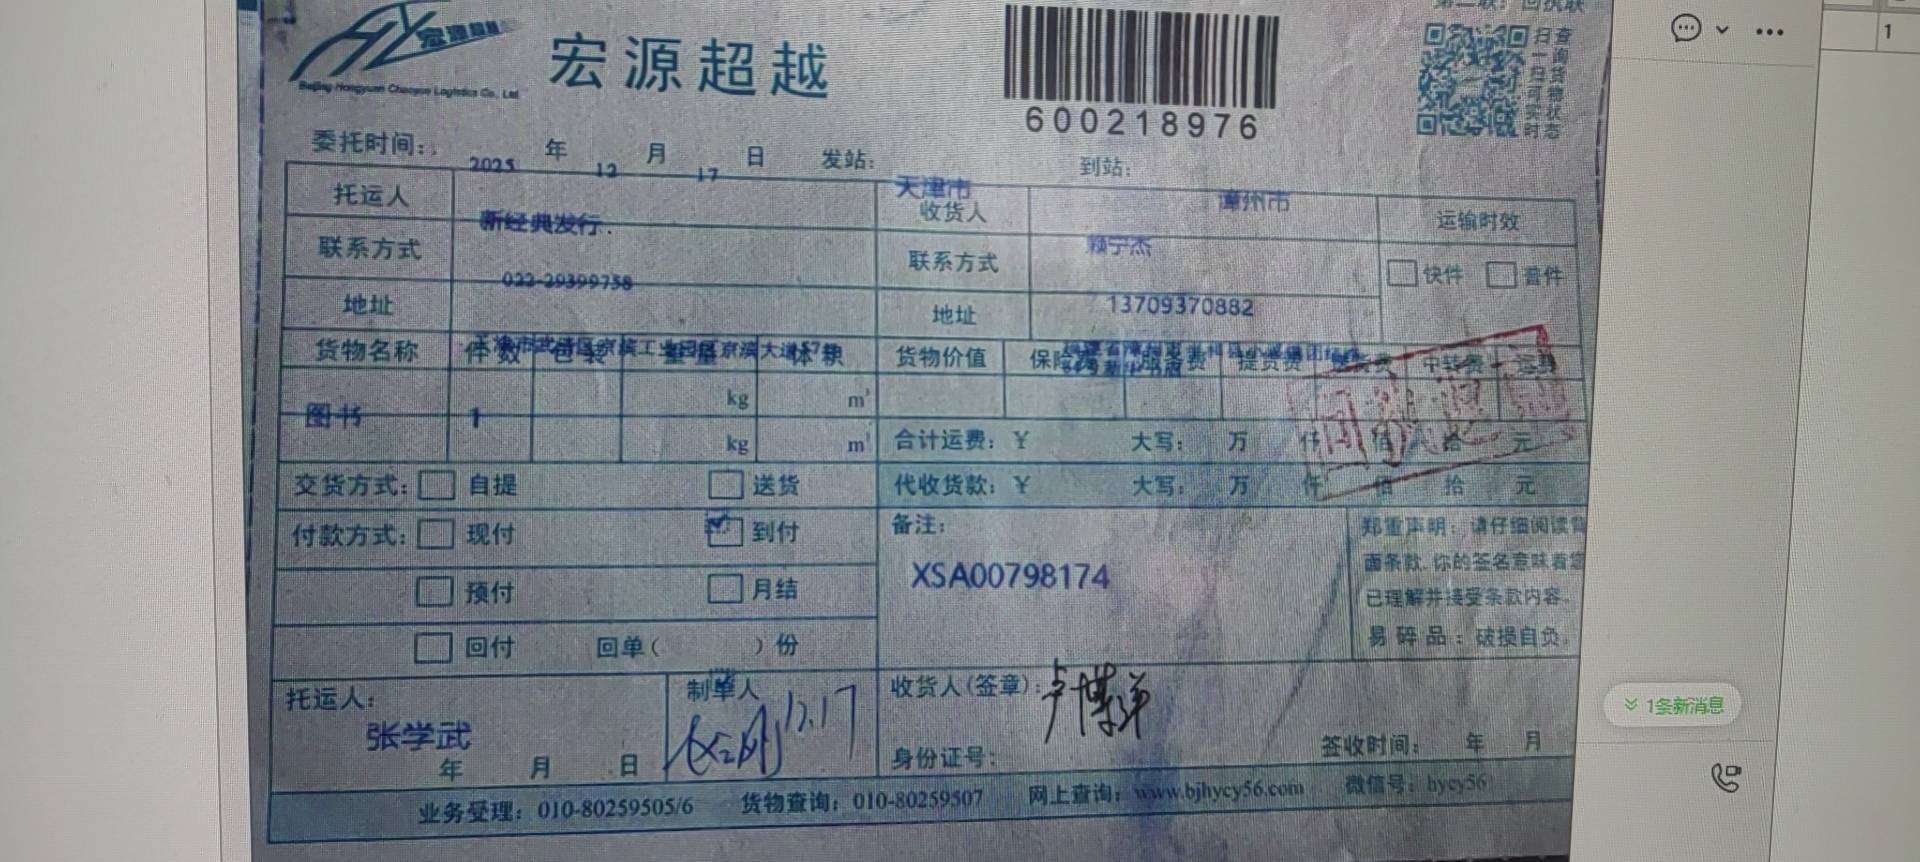 宏源超越
Beijing Hongyuan Chaoyue Logistics Co., Ltd
宏源超越
600218976
扫一扫可实时
查询货物状态
1
委托时间: 2025 年 12 月 17 日 发站: 天津市 到站: 漳州市
托运人 新经典发行. 收货人 运输时效
联系方式 022-29399758 联系方式 快件 普件
地址 地址 13709370882
货物名称 件数 包装 重量 体积 货物价值 保险费 提货费 送货费 中转费
图书 1 kg m³
kg m³
合计运费: ¥ 大写: 万 仟 佰 拾 元
交货方式: 自提 送货
代收货款: ¥ 大写: 万 仟 佰 拾 元
付款方式: 现付 到付
预付 月结
回付 回单( )份
备注:
XSA00798174
郑重声明: 请仔细阅读背
面条款.你的签名意味着您
已理解并接受条款内容.
易碎品: 破损自负.
托运人: 张学武
年 月 日
制单人
12.17
收货人(签章): 卢博洋
身份证号:
签收时间: 年 月
业务受理: 010-80259505/6 货物查询: 010-80259507 网上查询: www.bjhycy56.com 微信号: hycy56
1条新消息